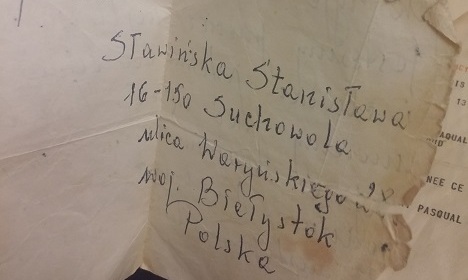 Sławińska Stanisława
16-150 Suchowola
ulica Waryńskiego
woj. Białystok
Polska
IS
13
NEE CE
PASQUAL